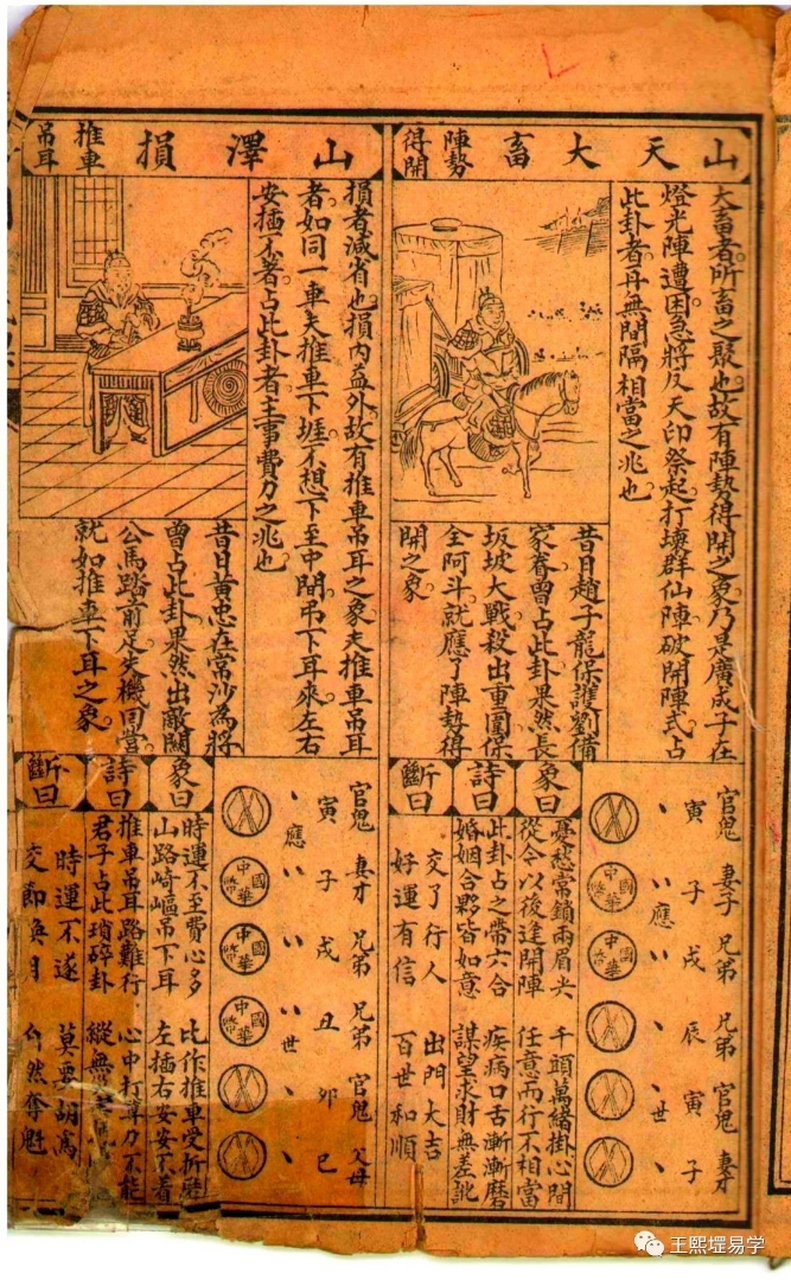 山天大畜 陣勢得開
大畜者所畜之聚也故有陣勢得開之象乃是廣成子在
燈光陣遭困急將反天印祭起打壞群仙陣破開陣式占
此卦者再無間隔相當之兆也
昔日趙子龍保護劉備
家眷曾占此卦果然長
坂坡大戰殺出重圍保
全阿斗就應了陣勢得
開之象
官鬼 妻子 兄弟 兄弟 官鬼 妻才
寅 子 戌 辰 寅 子
應 世
中華國幣
中華國幣
象曰
憂愁常鎖兩眉尖 千頭萬緒掛心間
從今以後逢開陣 任意而行不相當
詩曰
此卦占之帶六合 疾病口舌漸漸磨
婚姻合夥皆如意 謀望求財無差訛
斷曰
交了行人 出門大吉
好運有信 百世和順
山澤損 推車吊耳
損者減省也損內益外故有推車吊耳之象夫推車吊耳
者如同一車夫推車下堐不想下至中間吊下耳來左右
安插不著占此卦者主事費力之兆也
昔日黃忠在常沙為將
曾占此卦果然出敵關
公馬踏前足失機回營
就如推車下耳之象
官鬼 妻才 兄弟 兄弟 官鬼 父母
寅 子 戌 丑 卯 巳
應 世
中華國幣
中華國幣
中華國幣
象曰
時運不至費心多 比作推車受折磨
山路崎嶇吊下耳 左插右安安不着
詩曰
推車吊耳路難行 心中打算力不能
君子占此瑣碎卦 縱無
斷曰
時運不遂 莫要胡為
交節換月 自然奪魁
王熙堽易学